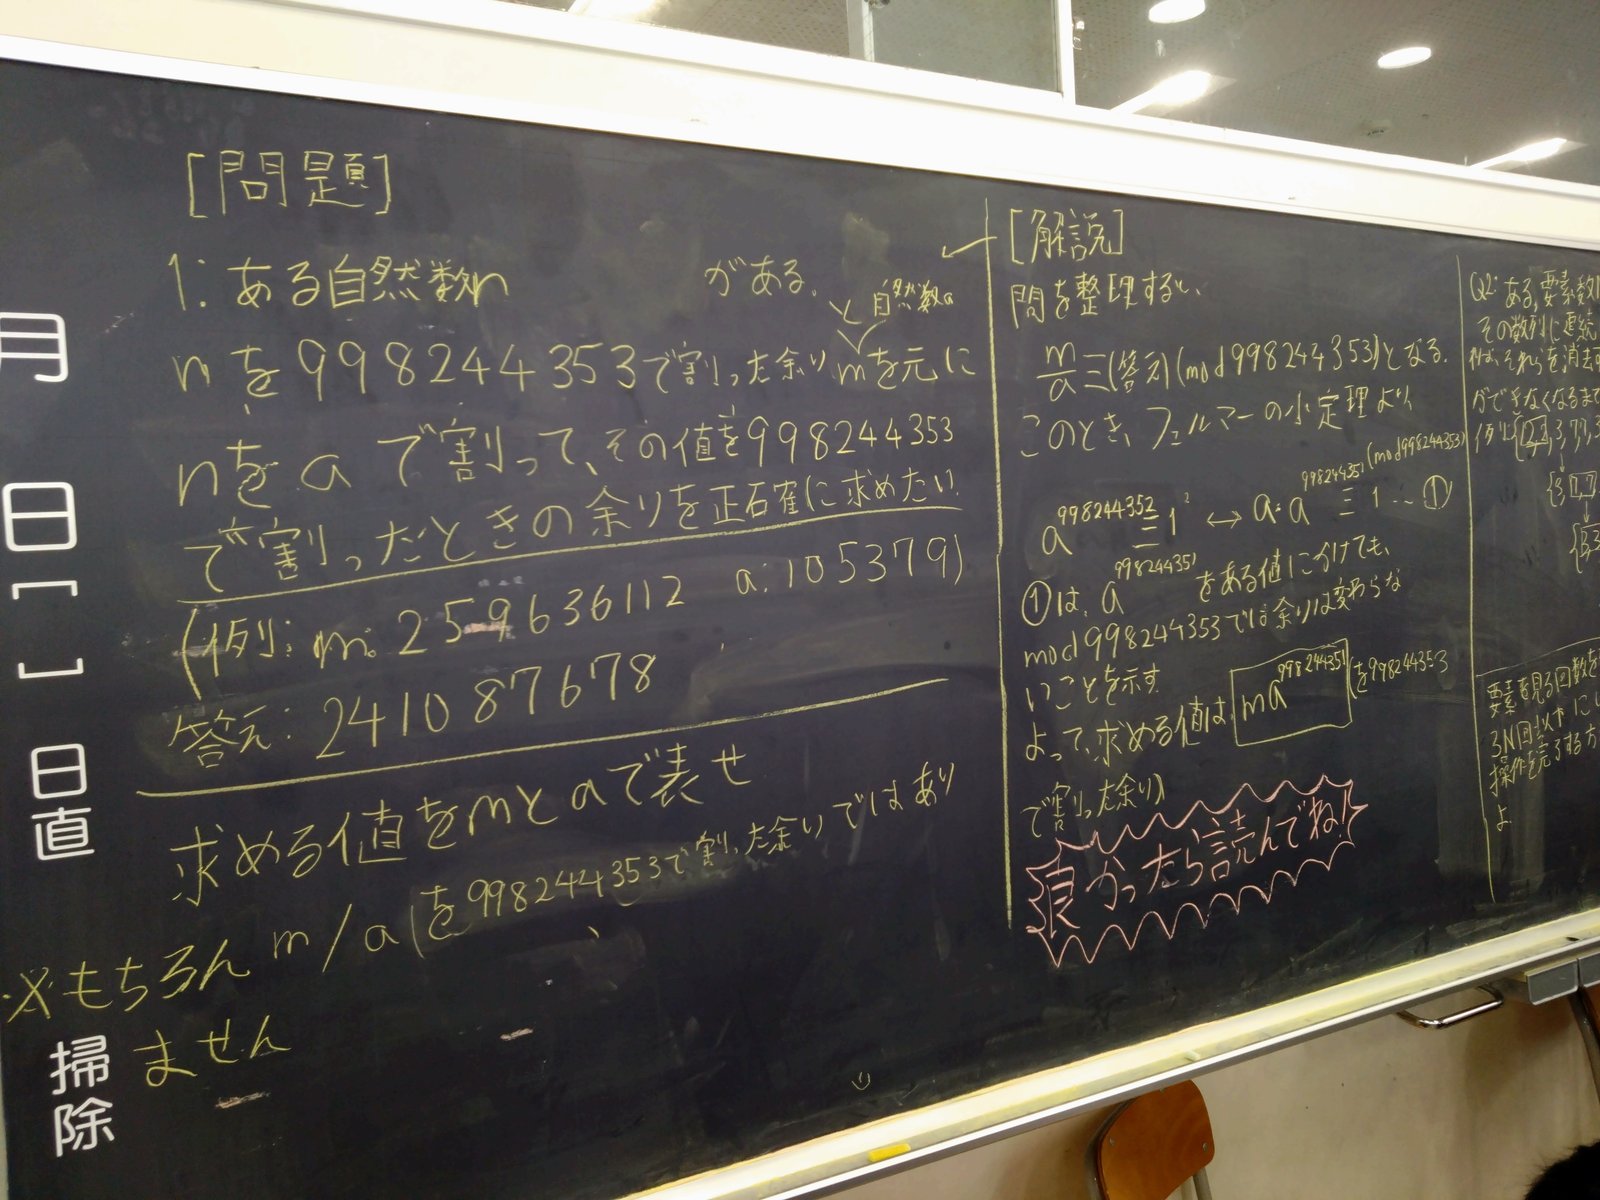 月
日
[
]
日直
掃除
[問題]
1: ある自然数n がある.
と自然数a
nを998244353で割った余りmを元に
nをaで割って、その値を998244353
で割ったときの余りを正確に求めたい
(例: m: 259636112 a: 105379)
答え: 241087678
求める値をmとaで表せ
※もちろん m/a(を998244353で割った余り)ではあり
ません
[解説]
問を整理すると、
m/a≡(答え)(mod998244353)となる.
このとき、フェルマーの小定理より
a^998244352≡1 ↔ a・a^998244351≡1…① (mod998244353)
①は、a^998244351をある値にかけても、
mod998244353では余りは変わらな
いことを示す
よって、求める値は、ma^998244351(を998244353
で割った余り)
良かったら読んでね!
Q2: ある、要素数
その数列に連続
れば、それらを消去
ができなくなるまで
例:
要素を見る回数を
3N回以下に
操作を完了する方
よ.